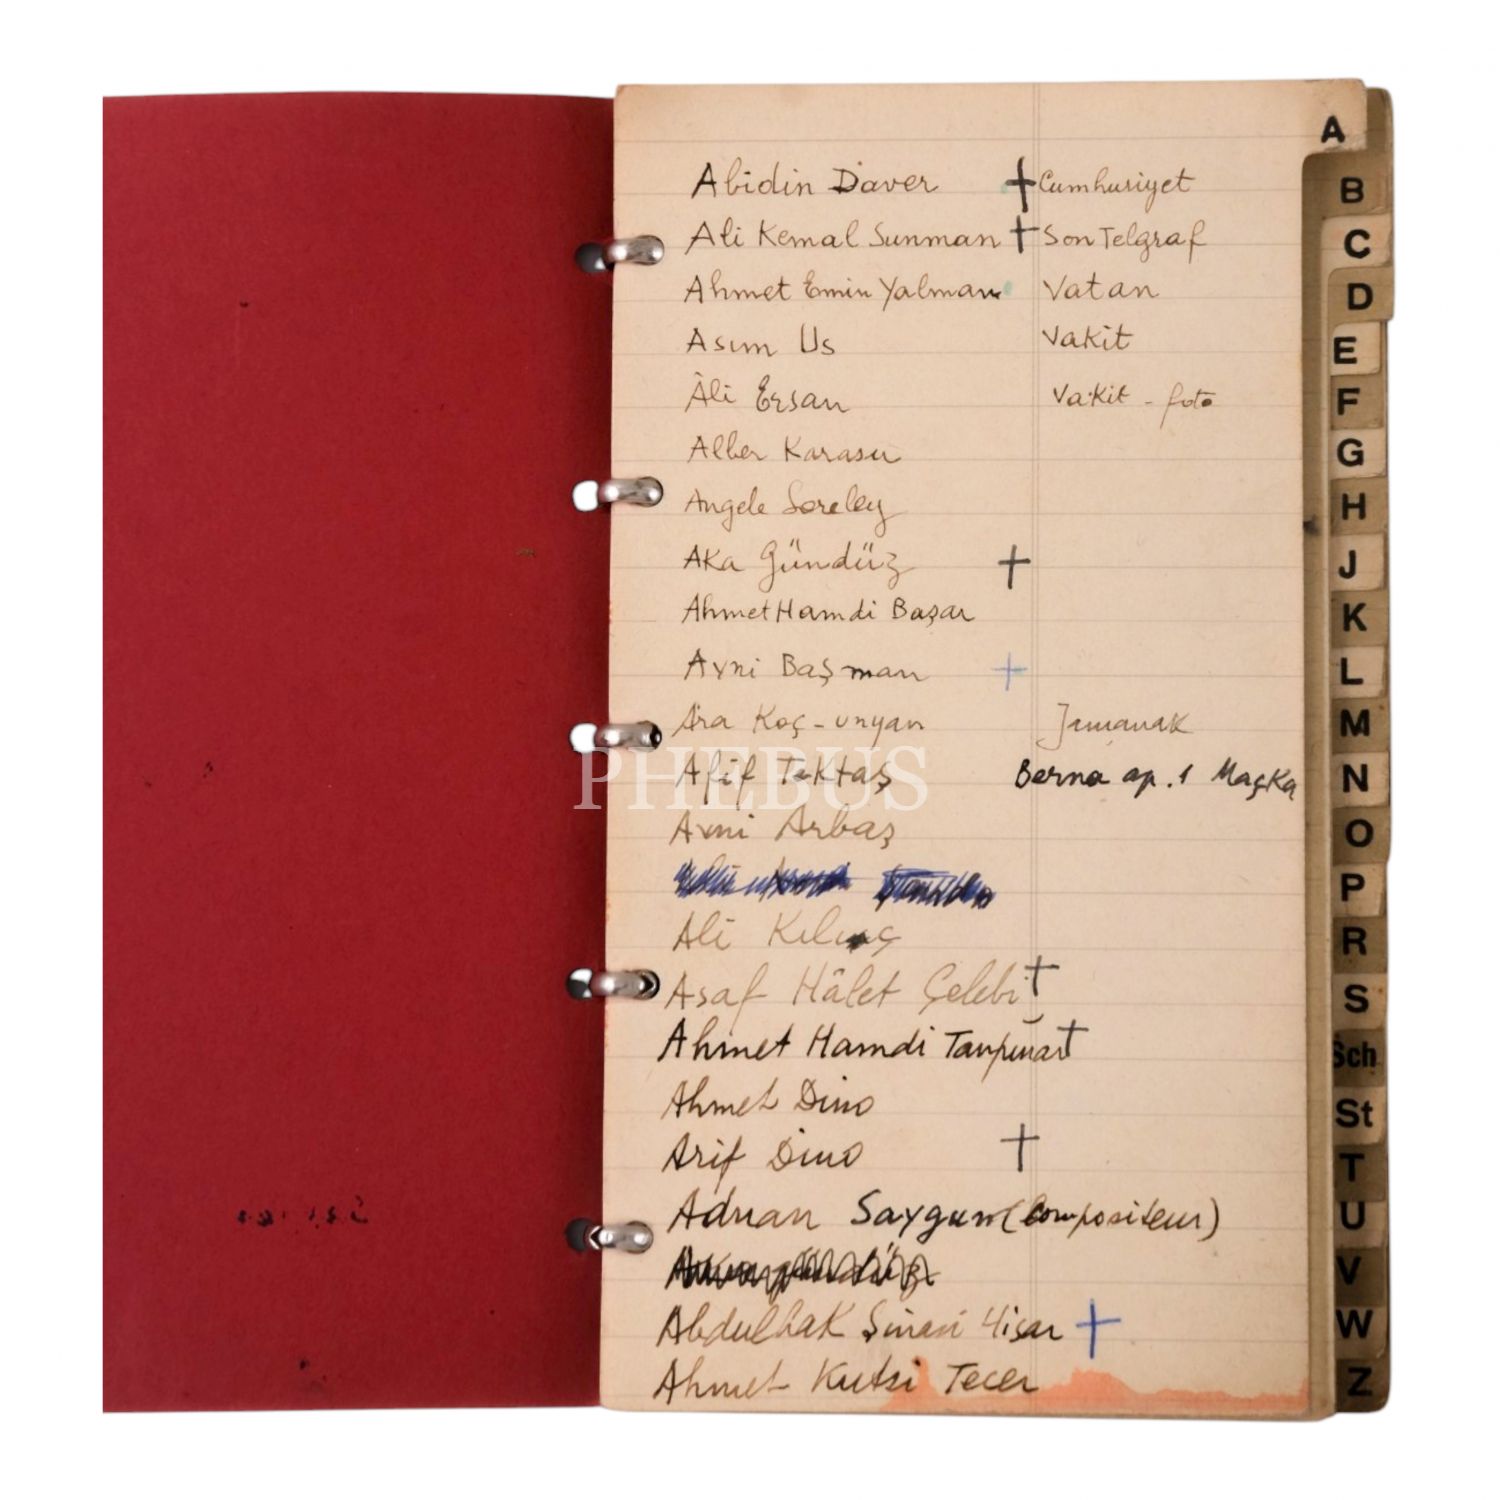 A
Abidin Daver + Cumhuriyet
Ali Kemal Sunman + Son Telgraf
Ahmet Emin Yalman Vatan
Asım Us Vakit
Âli Ersan Vakit - foto
Alber Karasu
Angele Loreley
Aka Gündüz +
Ahmet Hamdi Başar
Avni Başman +
Ara Koç-unyan Jamanak
Afif Tektaş Berna ap. 1 Maçka
Avni Arbaş
Ali Kılıç
Asaf Hâlet Çelebi +
Ahmet Hamdi Tanpınar +
Ahmet Dino
Arif Dino +
Adnan Saygun (Compositeur)
Abdulhak Şinasi Hisar +
Ahmet Kutsi Tecer
B
C
D
E
F
G
H
J
K
L
M
N
O
P
R
S
Sch
St
T
U
V
W
Z
PHEBUS